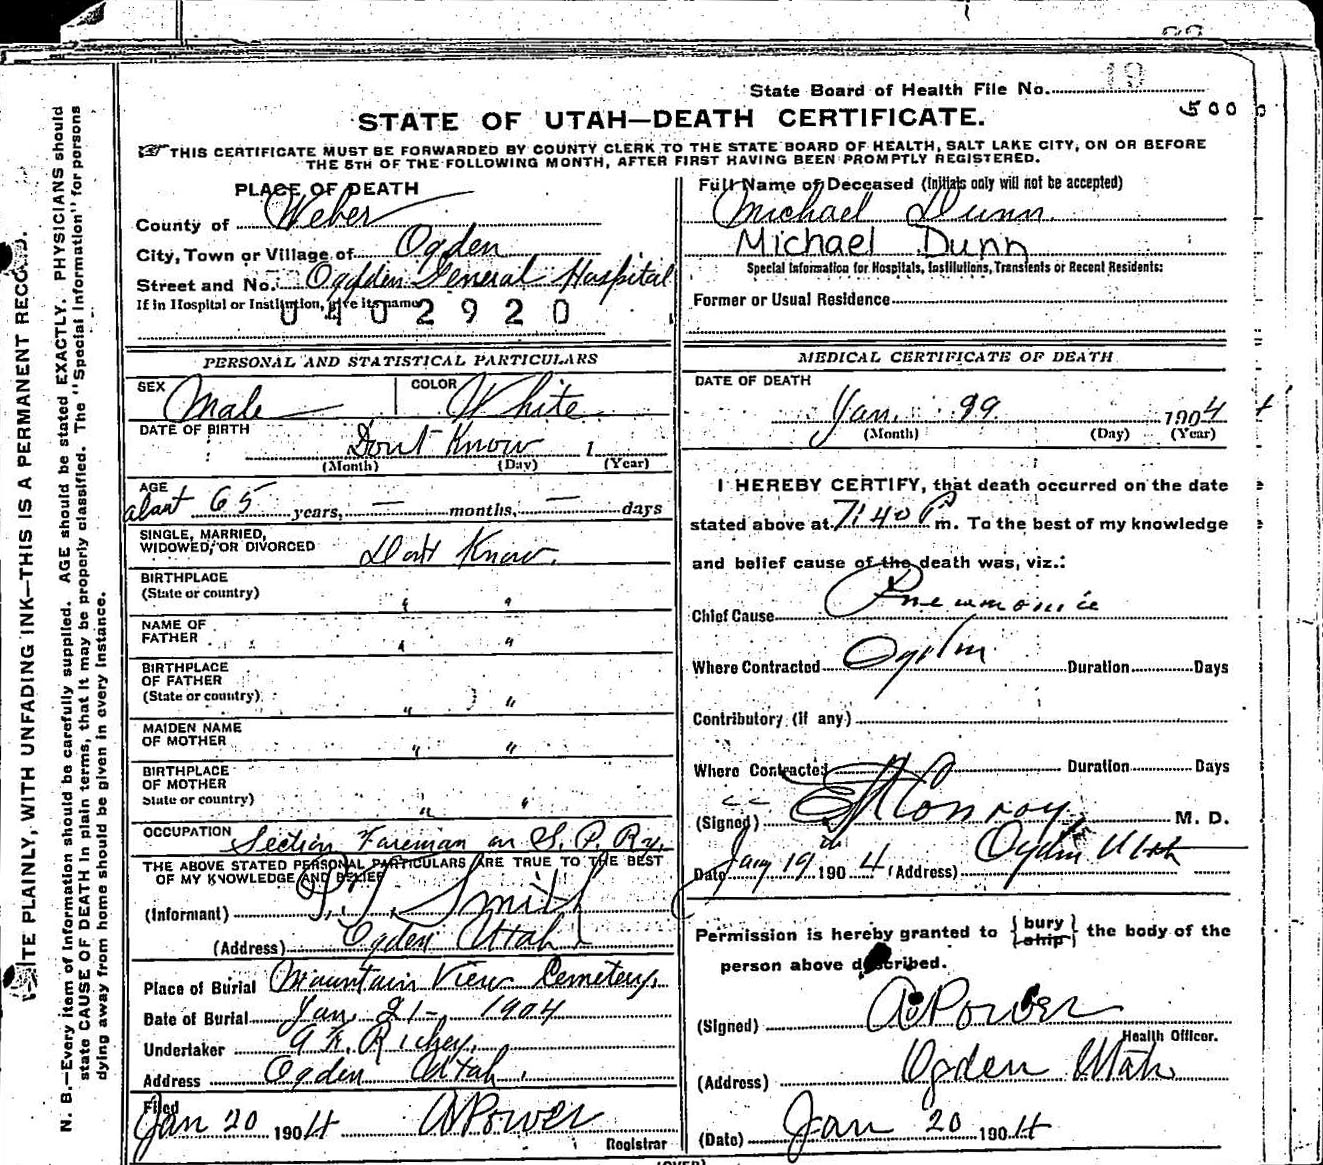 State Board of Health File No. 19
500
STATE OF UTAH—DEATH CERTIFICATE.
THIS CERTIFICATE MUST BE FORWARDED BY COUNTY CLERK TO THE STATE BOARD OF HEALTH, SALT LAKE CITY, ON OR BEFORE
THE 5TH OF THE FOLLOWING MONTH, AFTER FIRST HAVING BEEN PROMPTLY REGISTERED.
PLACE OF DEATH
County of Weber
City, Town or Village of Ogden
Street and No. Ogden General Hospital
If in Hospital or Institution, give its name
0402920
Full Name of Deceased (Initials only will not be accepted)
Michael Dunn
Michael Dunn
Special Information for Hospitals, Institutions, Transients or Recent Residents:
Former or Usual Residence
PERSONAL AND STATISTICAL PARTICULARS
SEX Male COLOR White
DATE OF BIRTH Dont Know 1
(Month) (Day) (Year)
AGE
about 65 years, — months, — days
SINGLE, MARRIED,
WIDOWED, OR DIVORCED Dont Know.
BIRTHPLACE
(State or country) " "
NAME OF
FATHER " "
BIRTHPLACE
OF FATHER
(State or country) " "
MAIDEN NAME
OF MOTHER " "
BIRTHPLACE
OF MOTHER
State or country) " "
OCCUPATION Section Foreman on S. P. Ry.
THE ABOVE STATED PERSONAL PARTICULARS ARE TRUE TO THE BEST
OF MY KNOWLEDGE AND BELIEF
(Informant) Smith
(Address) Ogden Utah
Place of Burial Mountain View Cemetery.
Date of Burial Jan. 21- 1904
Undertaker Richey.
Address Ogden Utah.
Filed
Jan 20 1904 A Power
Registrar
MEDICAL CERTIFICATE OF DEATH
DATE OF DEATH
Jan. 1904
(Month) (Day) (Year)
I HEREBY CERTIFY, that death occurred on the date
stated above at 7:40 P m. To the best of my knowledge
and belief cause of the death was, viz.:
Chief Cause Pneumonia
Where Contracted Ogden Duration Days
Contributory (if any)
Where Contracted Duration Days
(Signed) Conroy M. D.
Date Jany 19th 1904 (Address) Ogden Utah
Permission is hereby granted to { bury / ship } the body of the
person above described.
(Signed) A Power
Health Officer.
(Address) Ogden Utah
(Date) Jan 20 1904
(OVER)
N. B.—Every item of information should be carefully supplied. AGE should be stated EXACTLY. PHYSICIANS should
state CAUSE OF DEATH in plain terms, that it may be properly classified. The "Special Information" for persons
dying away from home should be given in every instance.
ITE PLAINLY, WITH UNFADING INK—THIS IS A PERMANENT RECORD.